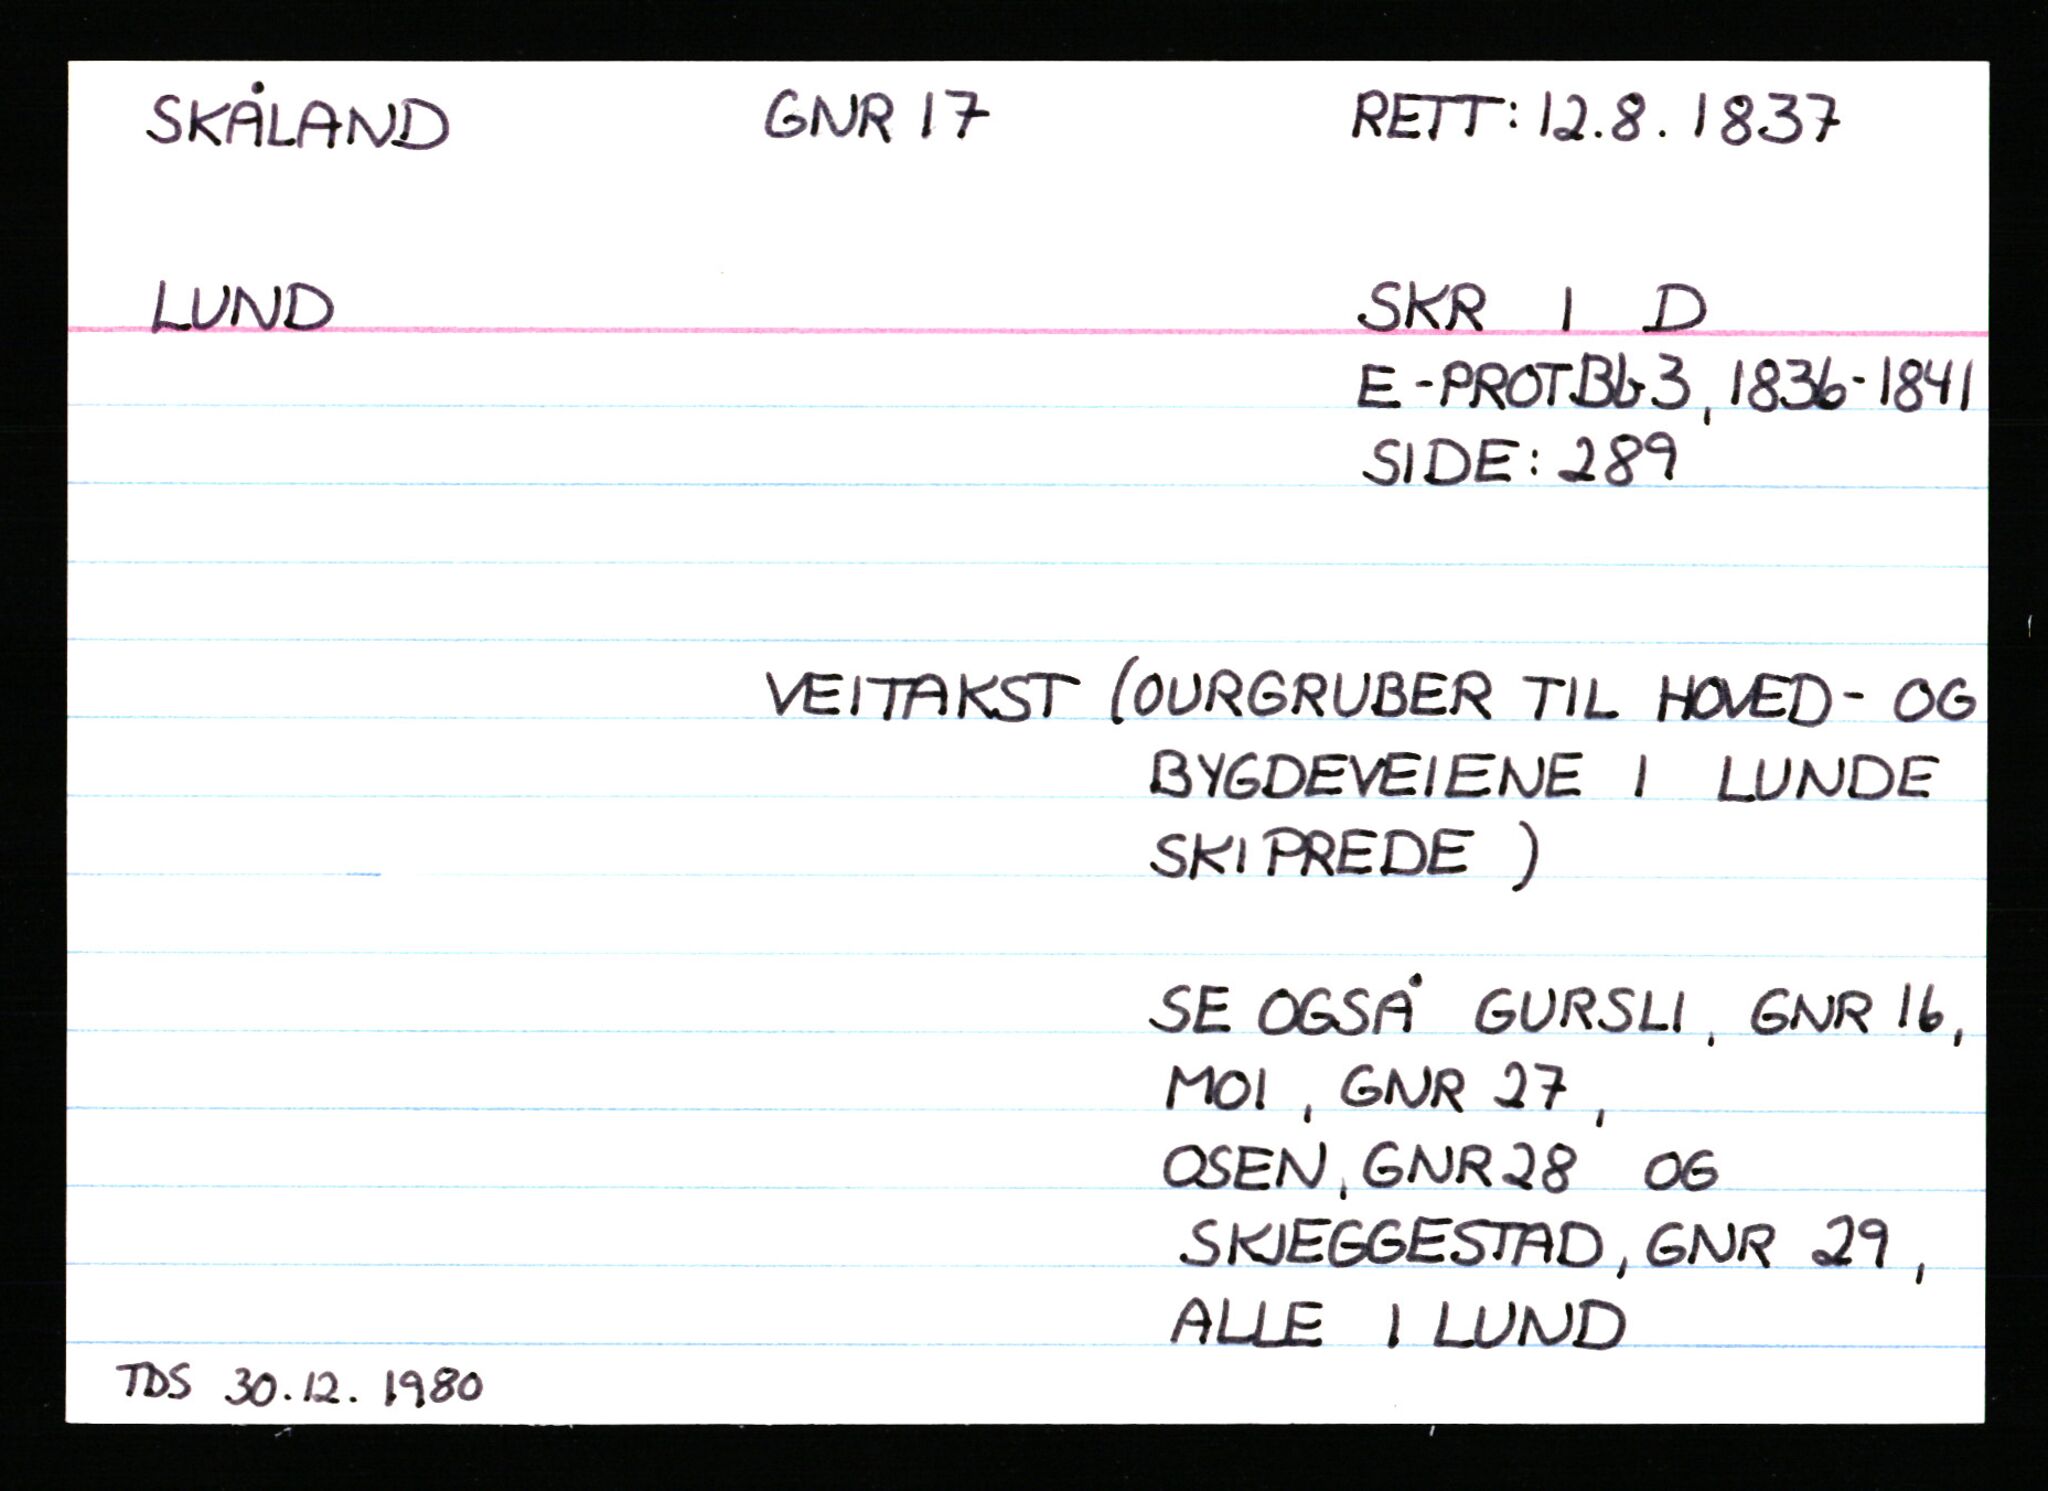 SKÅLAND GNR 17 RETT: 12.8.1837
LUND SKR I D
E-PROT.Bb3, 1836-1841
SIDE: 289
VEITAKST (OURGRUBER TIL HOVED- OG
BYGDEVEIENE I LUNDE
SKIPREDE)
SE OGSÅ GURSLI, GNR 16,
MOI, GNR 27,
OSEN, GNR 28 OG
SKJEGGESTAD, GNR 29,
ALLE I LUND
TDS 30.12.1980